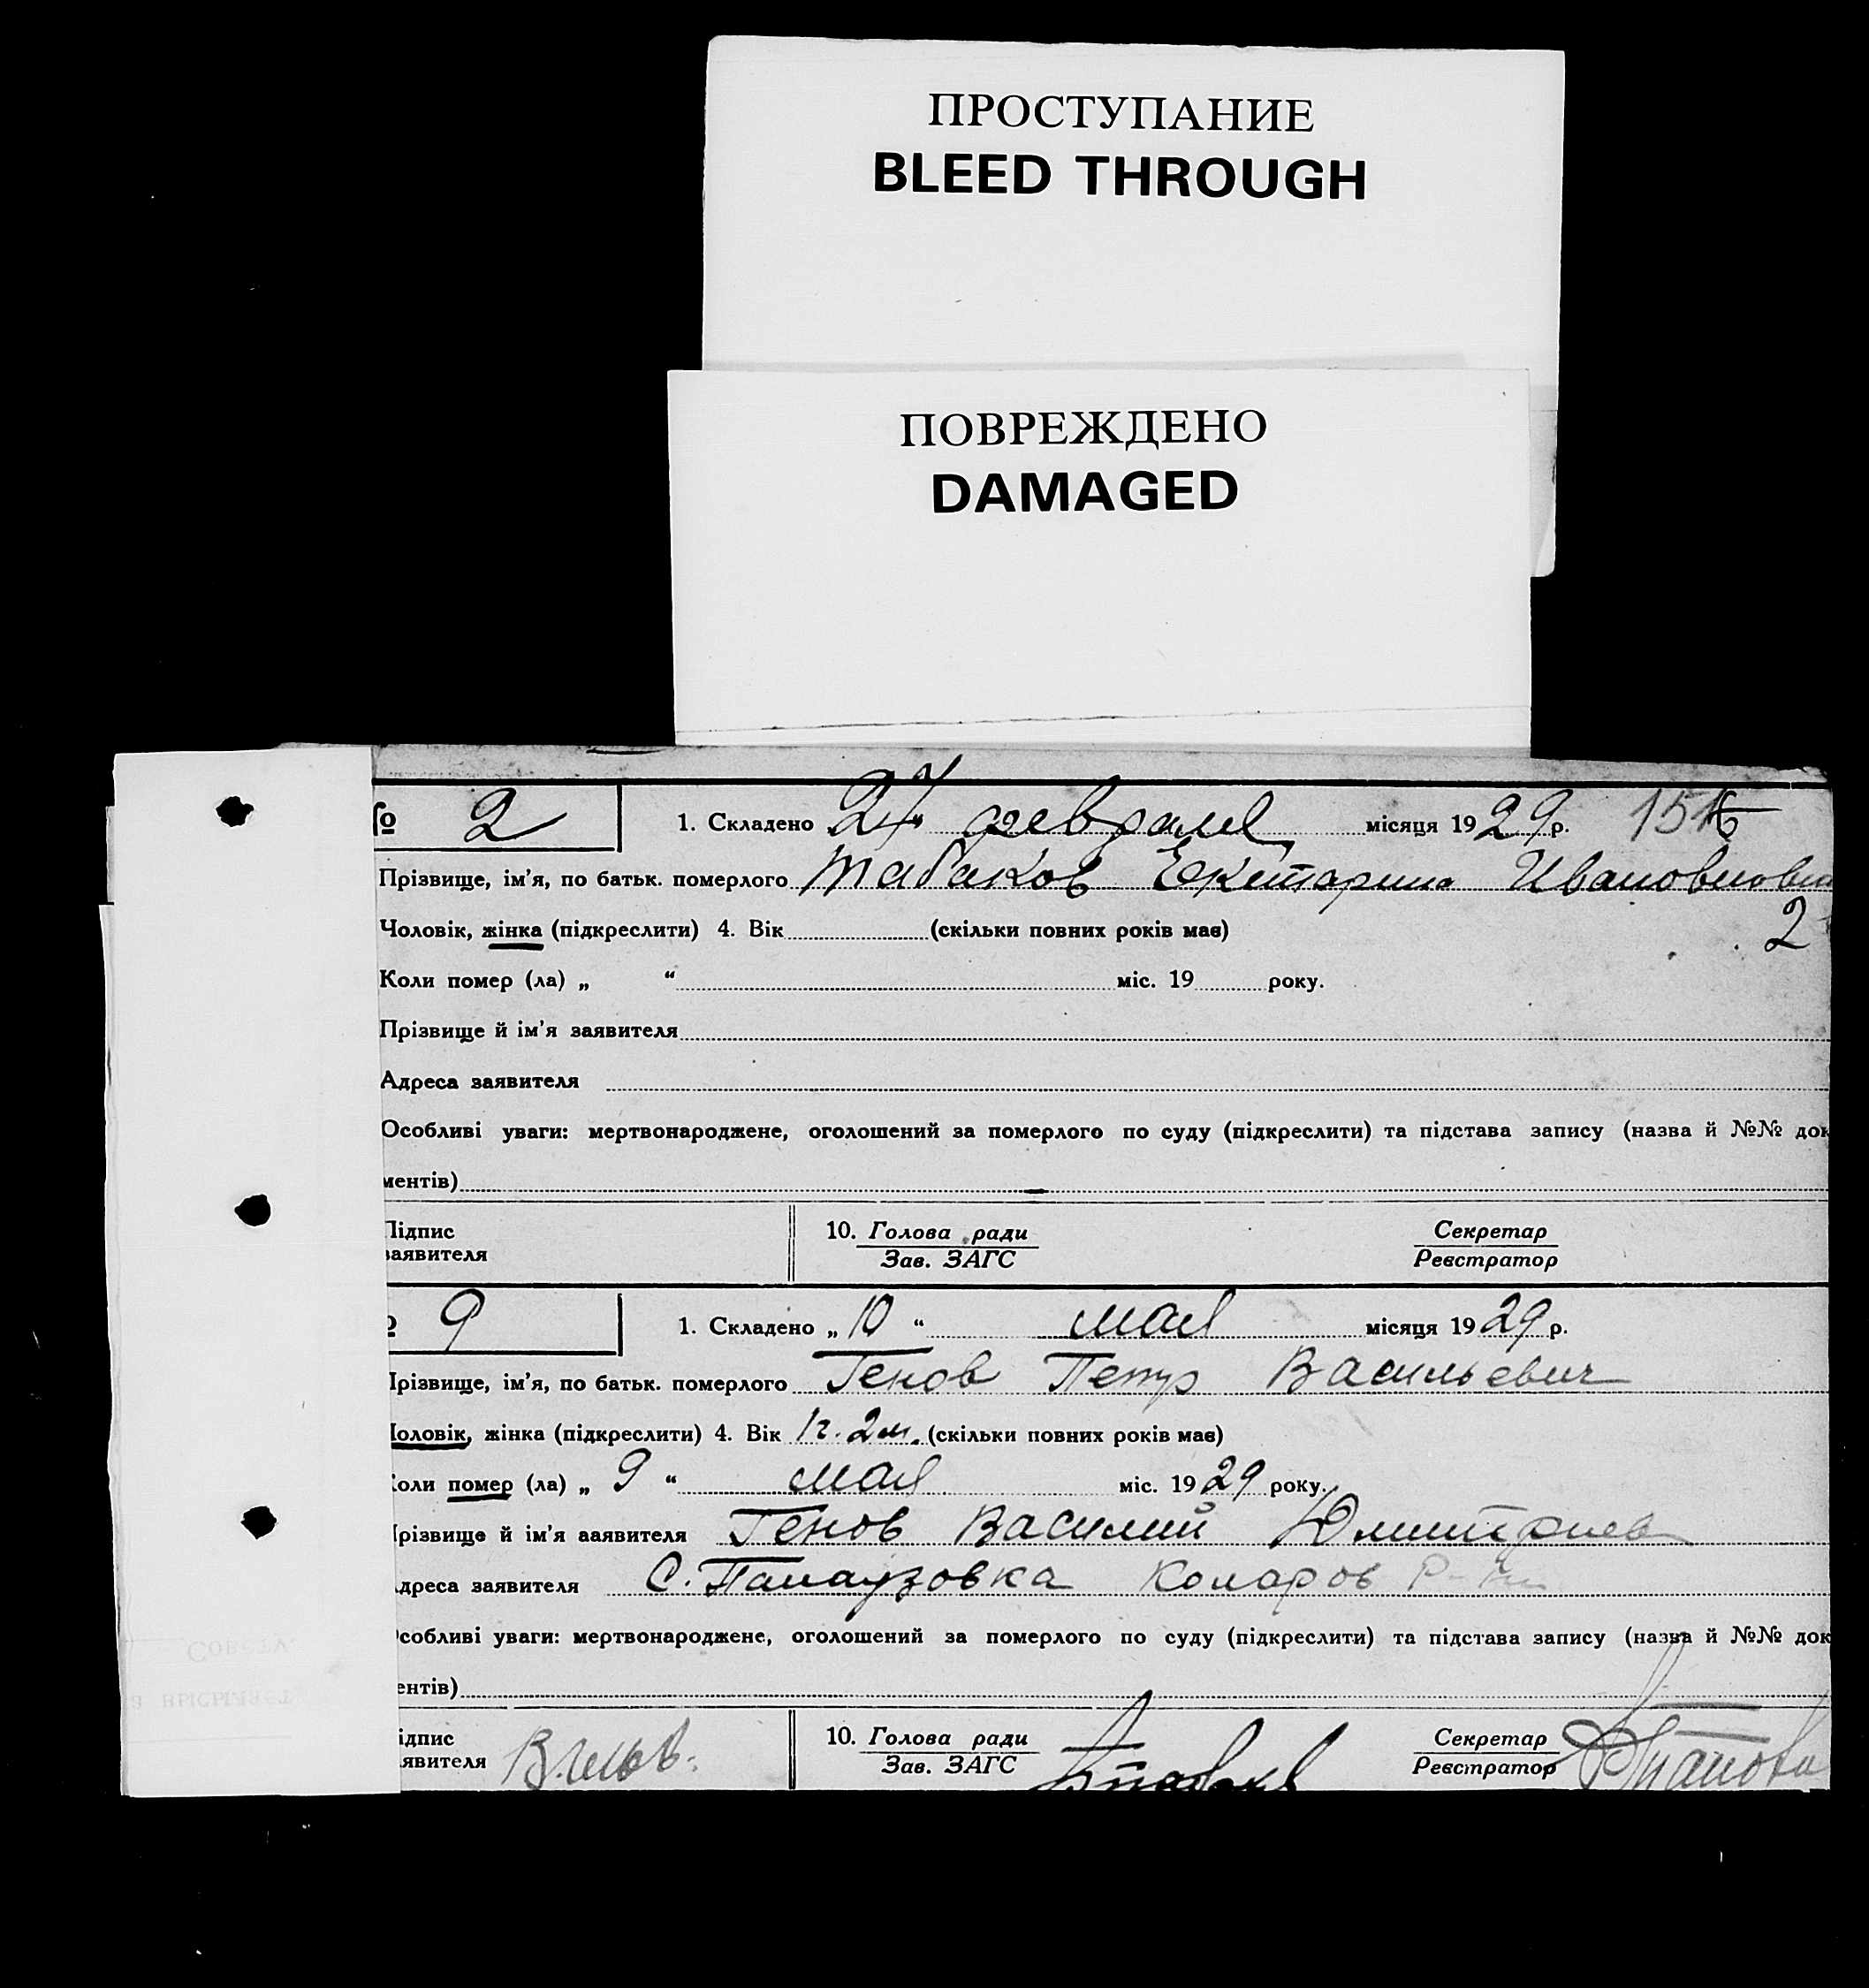 ПРОСТУПАНИЕ
BLEED THROUGH
ПОВРЕЖДЕНО
DAMAGED
№ 2 1. Складено 24 февраля місяця 1929 р.
Прізвище, ім'я, по батьк. померлого Табаков Екетарина
Чоловік, жінка (підкреслити) 4. Вік (скільки повних років має) 2
Коли помер (ла) „ “ міс. 19 року.
Прізвище й ім'я заявителя
Адреса заявителя
Особливі уваги: мертвонароджене, оголошений за померлого по суду (підкреслити) та підстава запису (назва й №№ док
ментів)
Підпис 10. Голова ради Секретар
заявителя Зав. ЗАГС Реєстратор
9 1. Складено „ 10 “ мая місяця 1929 р.
Прізвище, ім'я, по батьк. померлого Генов Петр Васильевич
Чоловік, жінка (підкреслити) 4. Вік 1г. 2м. (скільки повних років має)
Коли помер (ла) „ 9 “ мая міс. 1929 року.
Прізвище й ім'я заявителя Генов Василий Дмитриев
Адреса заявителя С. Палаузовка Комаров Р-
Особливі уваги: мертвонароджене, оголошений за померлого по суду (підкреслити) та підстава запису (назва й №№ док
ентів)
ідпис 10. Голова ради Секретар
явителя Зав. ЗАГС Реєстратор